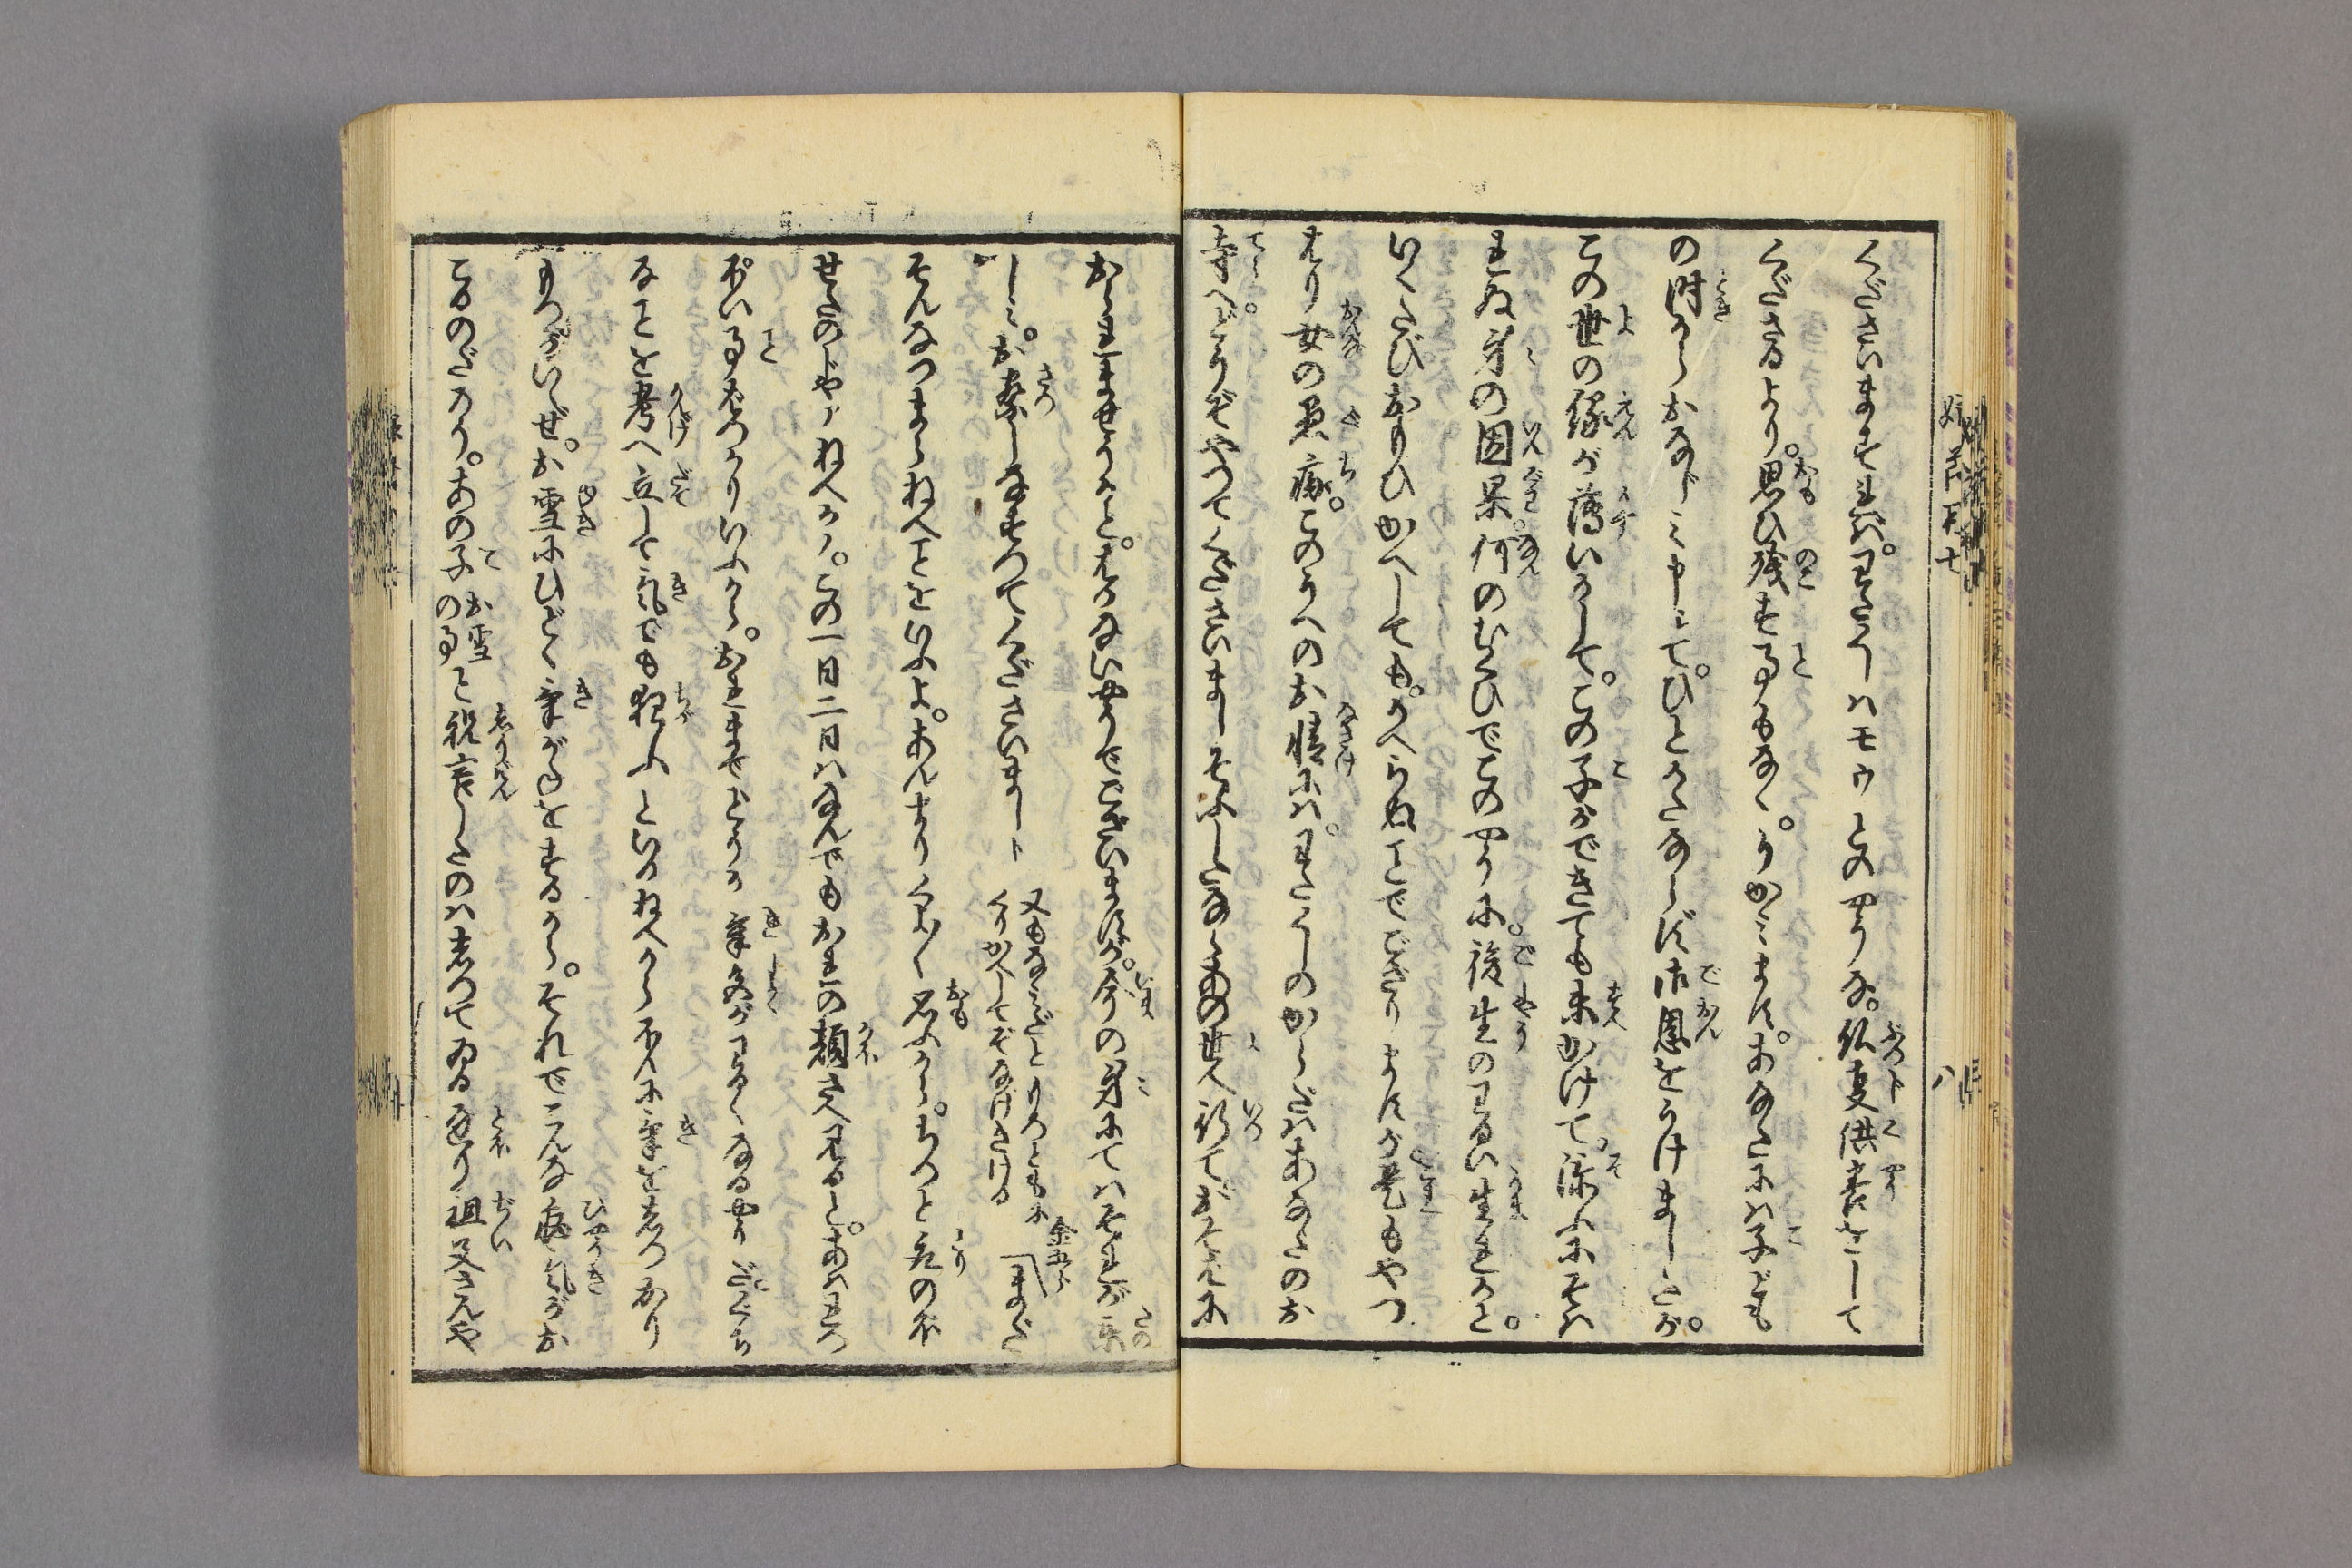 くださいますれば。わたくしハモウこのやうな。仏事供養をして
くださるより。思ひ残す事もなく。うかみます。あなたにハ子ども
の時からおなじみ申して。ひとかたならず御恩をうけましたが。
この世の縁が薄いかして。この子ができても末かけて。添ふにそハ
れぬ身の因果。何のむくひでこのやうに。後生のわるい生れかと。
いくたびおもひかへしても。かへらぬことでござりますが是もやつ
はり女の愚痴。このうへのお情にハ。わたくしのからだハあなたのお
寺へどうぞやつてくださいましそふしたならあの世へ行てがそんに
おられませうかと。はかないやうでございますが。今の身にてハそれが楽
しミ。お察しなすつてくださいましト
又もなミだともろともに
くりかへしてぞなげきける
金五郎「まだ
そんなつまらねへことをいふよ。あんまりくよくよ思ふから。ちつと凝のぼ
せたのじやアねへか。この一日二日ハなんでもおれの顔さへ見ると。あハれつ
ぽい事ばつかりいふから。おれまでどうか気色がわるくなるやうだ。ぐち
なことを考へ立して気でも狂ふといけねへから大に気をしつかり
もつがいゝぜ。お雪にひどく気がねをするから。それでこんな病気がお
こるのだらう。あの子の事
お雪
と祝言したのハしつてゐる通り祖父さんや